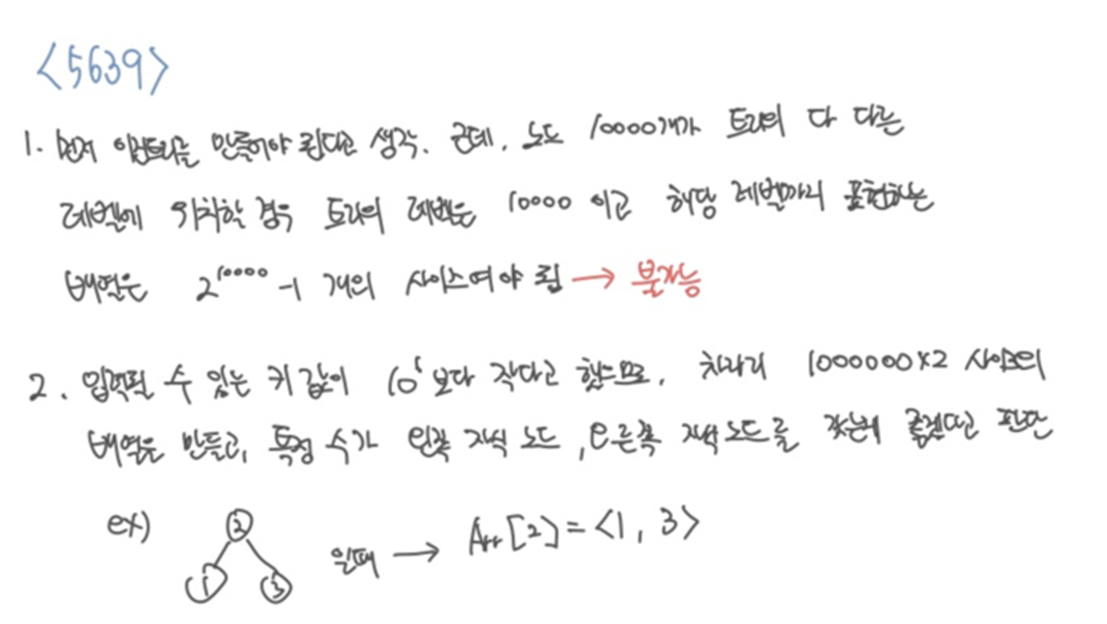 <5639>
1. 먼저 이진트리를 만들어야 된다고 생각. 근데, 노드 10000개가 트리의 다 다른
레벨에 위치할 경우 트리의 레벨은 10000 이고 해당 레벨까지 표현하는
배열은 2^10000 -1 개의 사이즈여야 됨 → 불가능
2. 입력될 수 있는 키 값이 10^6 보다 작다고 했으므로, 차라리 1000000×2 사이즈의
배열을 만들고, 특정 수가 왼쪽 자식 노드, 오른쪽 자식노드를 갖는게 좋겠다고 판단
ex) 2 일때 → Arr[2] = <1, 3>
1 3